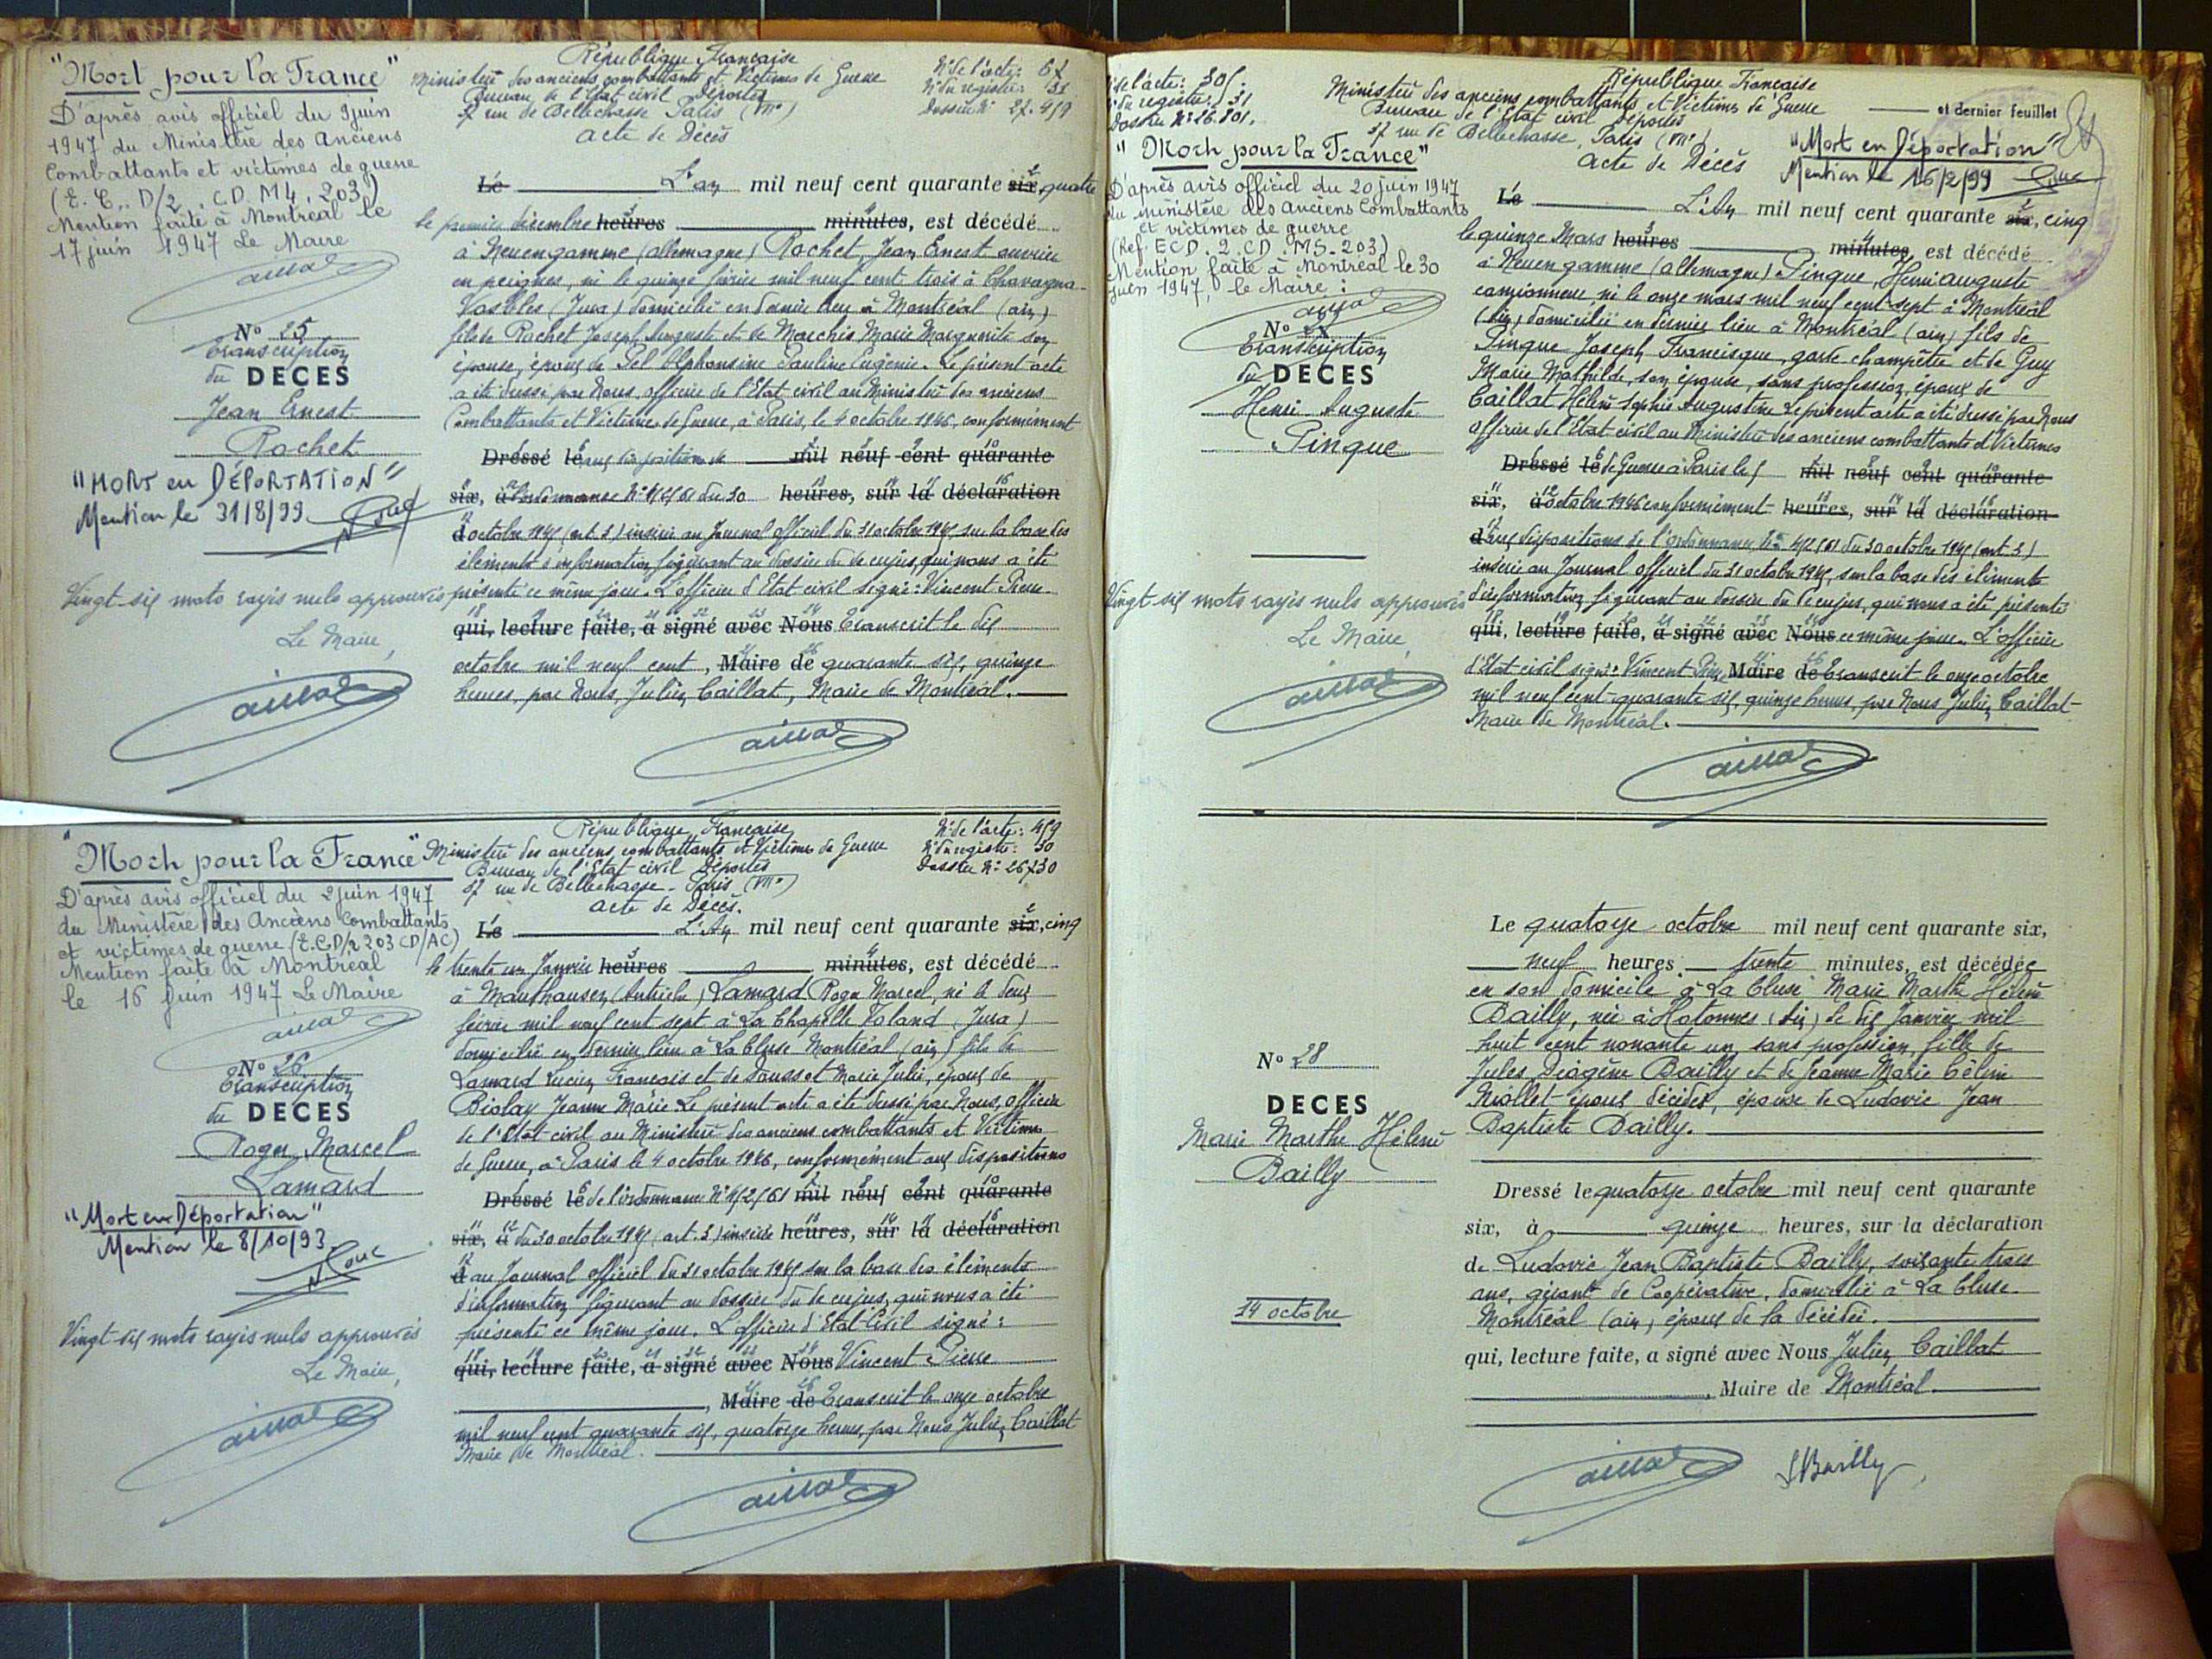 "Mort pour la France"
D'après avis officiel du 9 juin
1947 du Ministère des Anciens
Combattants et victimes de guerre
(E. C. D/2 . C.D. M4, 203)
Mention faite à Montréal le
17 juin 1947 Le Maire
N° 25
Transcription
du DECES
Jean Ernest
Rochet
"MORT en DÉPORTATION"
Mention le 31/8/99
Vingt-six mots rayés nuls approuvés
Le Maire,
République Française
Ministère des anciens combattants et Victimes de Guerre
Bureau de l'Etat civil Déportés
37 rue de Bellechasse Paris (VII°)
acte de Décès
N° de l'acte: 67
N° du registre: 31
Dossier N° 27.919
Le L'an mil neuf cent quarante six, quatre
le premier décembre heures minutes, est décédé
à Neuengamme (allemagne) Rochet, Jean Ernest ouvrier
en peignes, né le quinze février mil neuf cent trois à Chavagna-
Vasbles (Jura) domicilié en dernier lieu à Montréal (ain)
fils de Rochet Joseph Auguste et de Marchis Marie Marguerite son
épouse, époux de Pel Alphonsine Pauline Eugénie. Le présent acte
a été dressé par Nous, officier de l'Etat civil au Ministère des anciens
Combattants et Victimes de Guerre, à Paris, le 4 octobre 1946, conformément
Dressé le aux dispositions de mil neuf cent quarante
six, à l'ordonnance N° 45/2561 du 30 heures, sur la déclaration
d octobre 1945 (art. 3) insérée au Journal officiel du 31 octobre 1945, sur la base des
éléments d'information figurant au dossier du de cujus, qui nous a été
présenté ce même jour. L'officier d'Etat civil signé: Vincent Pierre.
qui, lecture faite, a signé avec Nous Transcrit le dix
octobre mil neuf cent, Maire de quarante six, quinze
heures, par Nous, Julien Caillat, Maire de Montréal.
"Morh pour la France"
D'après avis officiel du 2 juin 1947
du Ministère des Anciens Combattants
et victimes de guerre (E.C.D/2 203 CD/AC)
Mention faite à Montréal
le 16 Juin 1947 Le Maire
N° 26
Transcription
du DECES
Roger Marcel
Lamard
"Mort en Déportation"
Mention le 8/10/93
Vingt-six mots rayés nuls approuvés
Le Maire,
République Française
Ministère des anciens combattants et Victimes de Guerre
Bureau de l'Etat civil Déportés
37 rue de Bellechasse - Paris (VII°)
acte de Décès.
N° de l'acte: 459
N° du registre: 30
Dossier N° 26730
Le L'An mil neuf cent quarante six, cinq
le trente un Janvier heures minutes, est décédé
à Mauthausen (Autriche) Lamard Roger Marcel, né le deux
février mil neuf cent sept à La Chapelle Voland (Jura)
domicilié en dernier lieu à La Cluse Montréal (ain) fils de
Lamard Lucien Francois et de Doussot Marie Julie, époux de
Biolay Jeanne Marie Le présent acte a été dressé par Nous, officier
de l'Etat civil au Ministère des anciens combattants et Victimes
de Guerre, à Paris le 4 octobre 1946, conformément aux dispositions
Dressé le de l'ordonnance N° 45/2561 mil neuf cent quarante
six, à du 30 octobre 1945 (art. 3) insérée heures, sur la déclaration
d au Journal officiel du 31 octobre 1945 sur la base des éléments
d'information figurant au dossier du de cujus, qui nous a été
présenté ce même jour. L'officier d'Etat Civil signé:
qui, lecture faite, a signé avec Nous Vincent Pierre
, Maire de Transcrit le onze octobre
mil neuf cent quarante six, quatorze heures, par Nous Julien Caillat
Maire de Montréal.
N° de l'acte: 305
N° du registre: 31
Dossier N° 26.801.
"Morh pour la France"
D'après avis officiel du 20 juin 1947
du ministère des Anciens Combattants
et victimes de guerre
(Ref. ECD. 2. CD. MS. 203)
Mention faite à Montréal le 30
juin 1947, le Maire :
N° 27
Transcription
du DECES
Henri Auguste
Pingue
Vingt-six mots rayés nuls approuvés
Le Maire,
République Française
Ministère des anciens combattants et Victimes de Guerre
Bureau de l'Etat civil Déportés
37 rue de Bellechasse, Paris (VII°)
acte de Décès
et dernier feuillet
"Mort en Déportation"
Mention le 16/2/99
Le L'An mil neuf cent quarante six, cinq
le quinze Mars heures minutes, est décédé
à Neuengamme (allemagne) Pingue, Henri auguste
camionneur, né le onze mars mil neuf cent sept à Montréal
(Ain) domicilié en dernier lieu à Montréal (ain) fils de
Pingue Joseph Francisque, garde champêtre et de Guy
Marie Mathilde, son épouse, sans profession, époux de
Caillat Hélène Sophie Augustine Le présent acte a été dressé par Nous
officier de l'Etat civil au Ministère des anciens combattants et Victimes
Dressé le de Guerre à Paris le 5 mil neuf cent quarante
six, à octobre 1946 conformément heures, sur la déclaration
d aux dispositions de l'ordonnance N° 45/2561 du 30 octobre 1945 (art. 3)
insérée au Journal officiel du 31 octobre 1945, sur la base des éléments
d'information figurant au dossier du de cujus, qui nous a été présenté
qui, lecture faite, a signé avec Nous ce même jour. L'officier
d'Etat civil signé: Vincent Pierre Maire de Transcrit le onze octobre
mil neuf cent quarante six, quinze heures, par Nous Julien Caillat
Maire de Montréal.
N° 28
DECES
Marie Marthe Hélène
Bailly
14 octobre
Le quatorze octobre mil neuf cent quarante six,
neuf heures trente minutes, est décédée
en son domicile à La Cluse Marie Marthe Hélène
Bailly, née à Hotonnes (Ain) le dix Janvier mil
huit cent nonante un, sans profession, fille de
Jules Diogène Bailly et de Jeanne Marie Céline
Miollet époux décédés, épouse de Ludovic Jean
Baptiste Bailly.
Dressé le quatorze octobre mil neuf cent quarante
six, à quinze heures, sur la déclaration
de Ludovic Jean Baptiste Bailly, soixante trois
ans, gérant de Coopérative, domicilié à La Cluse.
Montréal (ain) époux de la décédée.
qui, lecture faite, a signé avec Nous Julien Caillat
, Maire de Montréal.
LBailly